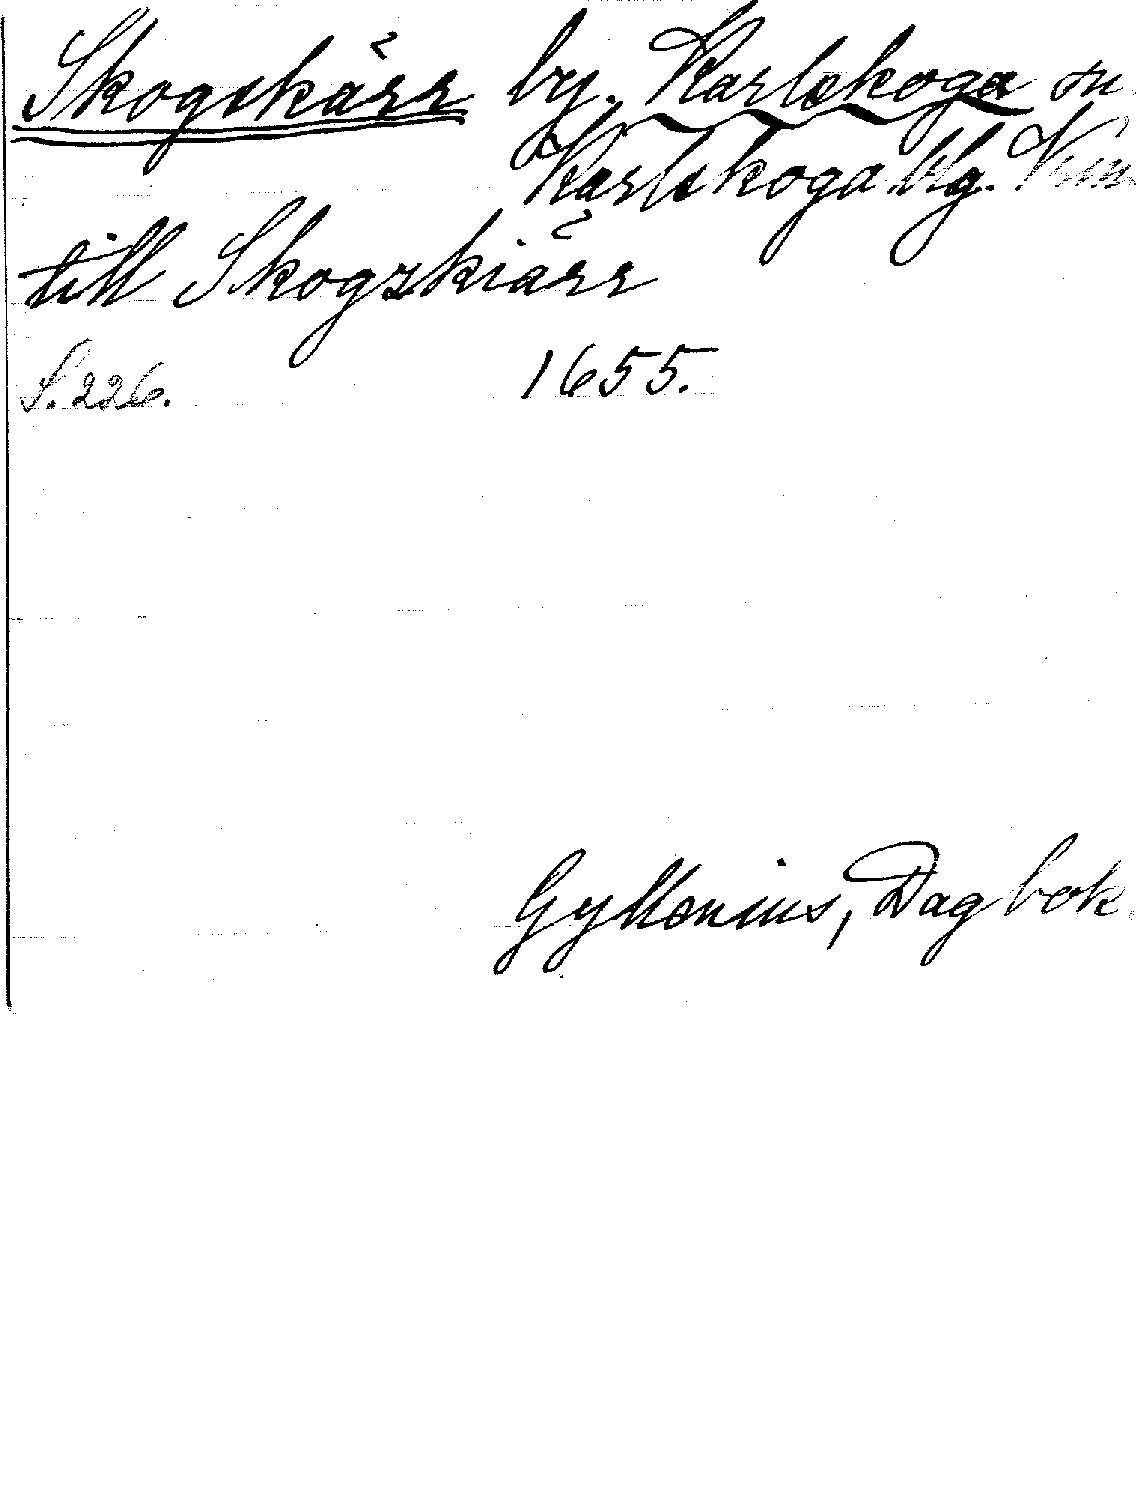 Skogskärr by. Karlskoga sn.
Karlskoga blg.
till Skogzkiärr
S. 226. 1655.
Gyllenius, Dagbok.